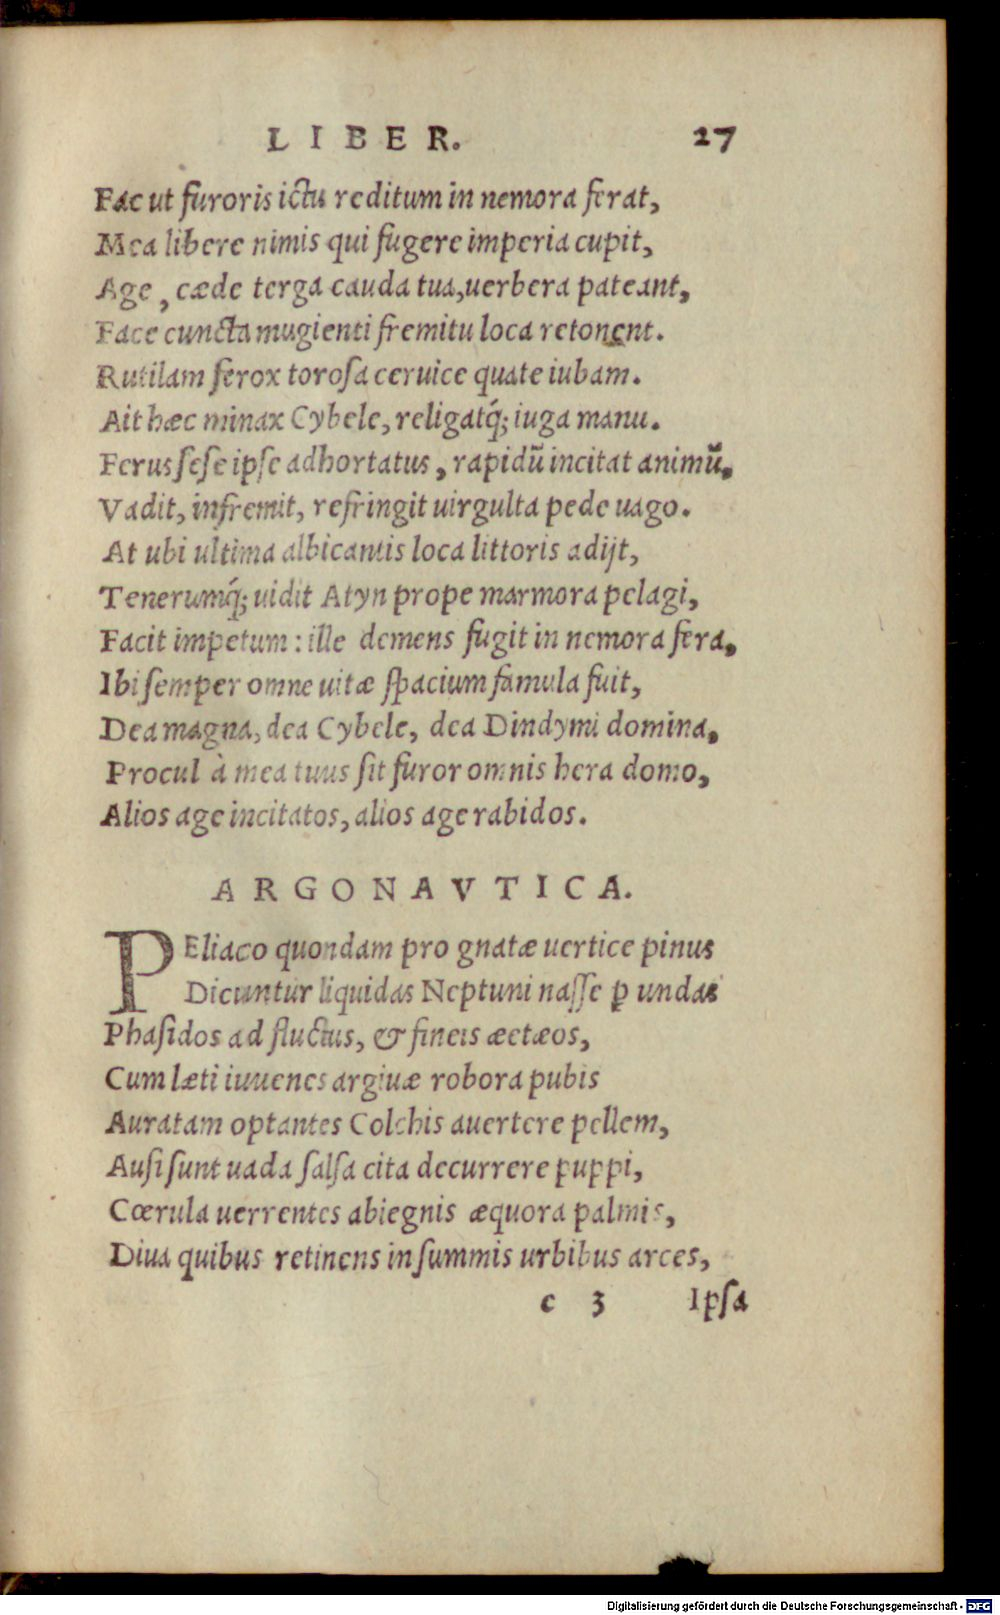 LIBER. 27
Fac ut furoris ictu reditum in nemora ferat,
Mea libere nimis qui fugere imperia cupit,
Age, cæde terga cauda tua, uerbera pateant,
Face cuncta mugienti fremitu loca retonent.
Rutilam ferox torosa ceruice quate iubam.
Ait hæc minax Cybele, religatq́; iuga manu.
Ferus sese ipse adhortatus, rapidũ incitat animũ,
Vadit, infremit, refringit uirgulta pede uago.
At ubi ultima albicantis loca littoris adijt,
Tenerumq́; uidit Atyn prope marmora pelagi,
Facit impetum: ille demens fugit in nemora fera,
Ibi semper omne uitæ spacium famula fuit,
Dea magna, dea Cybele, dea Dindymi domina,
Procul à mea tuus sit furor omnis hera domo,
Alios age incitatos, alios age rabidos.
ARGONAVTICA.
PEliaco quondam pro gnatæ uertice pinus
Dicuntur liquidas Neptuni nasse ꝑ undas
Phasidos ad fluctus, & fineis æetæos,
Cum læti iuuenes argiuæ robora pubis
Auratam optantes Colchis auertere pellem,
Ausi sunt uada salsa cita decurrere puppi,
Cœrula uerrentes abiegnis æquora palmis,
Diua quibus retinens in summis urbibus arces,
c 3 Ipsa
Digitalisierung gefördert durch die Deutsche Forschungsgemeinschaft - DFG